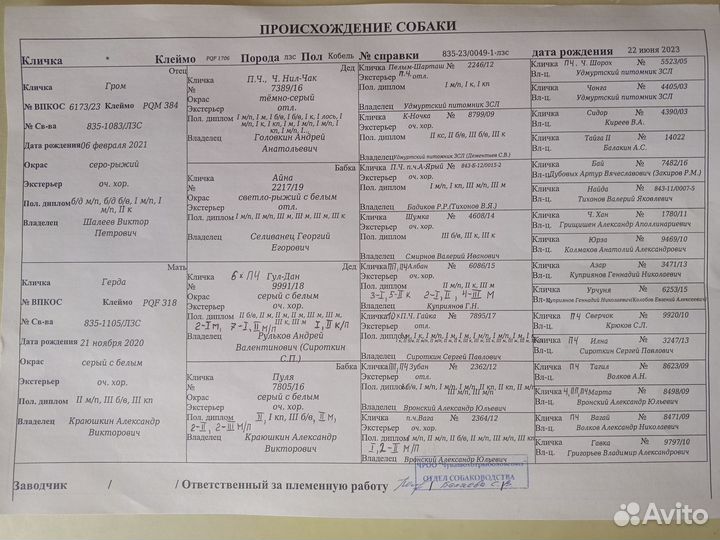 ПРОИСХОЖДЕНИЕ СОБАКИ
Кличка * Клеймо PQF 1706 Порода лзс Пол Кобель № справки 835-23/0049-1-лзс дата рождения 22 июня 2023
Отец
Кличка
Гром
№ ВПКОС 6173/23 Клеймо PQM 384
№ Св-ва 835-1083/ЛЗС
Дата рождения 06 февраля 2021
Окрас серо-рыжий
Экстерьер оч. хор.
Пол. диплом б/д м/п, б/д б/в, I м/п, I м/п, II к
Владелец Шалеев Виктор
Петрович
Мать
Кличка
Герда
№ ВПКОС Клеймо PQF 318
№ Св-ва 835-1105/ЛЗС
Дата рождения 21 ноября 2020
Окрас серый с белым
Экстерьер оч. хор.
Пол. диплом II м/п, III б/в, III кп
Владелец Краюшкин Александр
Викторович
Дед
Кличка П.Ч., Ч. Нил-Чак
№ 7389/16
Окрас тёмно-серый
Экстерьер отл.
Пол. диплом I м/п, I м, I б/в, I б/в, I к, I лось, I
Владелец Головкин Андрей
Анатольевич
Бабка
Кличка Айна
№ 2217/19
Окрас светло-рыжий с белым
Экстерьер оч. хор.
Пол. диплом I м/п, II м/п, III м, III м, III м, III к
Владелец Селиванец Георгий
Егорович
Дед
Кличка 6х ПЧ Гул-Дан
№ 9991/18
Окрас серый с белым
Экстерьер оч. хор.
2-I м, 7-I, II м/п I, II к/п
Владелец Рульков Андрей
Валентинович (Сироткин
С.П.)
Бабка
Кличка Пуля
№ 7805/16
Окрас серый с белым
Экстерьер оч. хор.
Пол. диплом II, I кп, III б/в, II м,
2-II, 2-III м/п
Владелец Краюшкин Александр
Викторович
Кличка Пелым-Шарташ № 2246/12
Экстерьер П.Ч. отл.
Пол. диплом I м/п, I к, I кп
Владелец Удмуртский питомник ЗСЛ
Кличка К-Ночка № 8799/09
Экстерьер оч. хор.
Пол. диплом II кс, II б/в, III б/в, III к
Владелец Удмуртский питомник ЗСЛ (Дементьев С.В.)
Кличка П.Ч. п.ч.А-Ярый № 843-Б-12/0015-2
Экстерьер отл.
Пол. диплом I м/п, I кп, III м/п, III м
Владелец Бадиков Р.Р.(Тихонов В.Я.)
Кличка Шумка № 4608/14
Экстерьер оч. хор.
Пол. диплом III б/в, III к, III к
Владелец Смирнов Валерий Иванович
Кличка ПП, ПЧ Албан № 6086/15
Экстерьер оч. хор.
Пол. диплом 3-I, 5-II к 2-I, II, 4-III м
Владелец Куприянов Г.Н.
Кличка П.Ч. Гайка № 7895/17
Экстерьер отл.
Владелец Сироткин Сергей Павлович
Кличка ПП, ПЧ Зубан № 2362/12
Экстерьер отл.
Владелец Вронский Александр Юльевич
Кличка п.ч.Вага № 2364/12
Экстерьер оч. хор.
I, 2-II м/п
Владелец Вронский Александр Юльевич
Кличка ПЧ. Ч. Шорох № 5523/05
Вл-ц. Удмуртский питомник ЗСЛ
Кличка Чонга № 4405/03
Вл-ц. Удмуртский питомник ЗСЛ
Кличка Сидор № 4390/03
Вл-ц. Киреев В.А.
Кличка Тайга II № 14022
Вл-ц. Балакин А.С.
Кличка Бай № 7482/16
Вл-ц. Дубовых Артур Вячеславович (Захиров Р.М.)
Кличка Найда № 843-11/0007-5
Вл-ц. Тихонов Валерий Яковлевич
Кличка Ч. Хан № 1780/11
Вл-ц. Грищишен Александр Аполлинариевич
Кличка Юрза № 9469/10
Вл-ц. Колмаков Анатолий Александрович
Кличка Азар № 3471/13
Вл-ц. Куприянов Геннадий Николаевич
Кличка Урчуня № 6253/15
Вл-ц. Куприянов Геннадий Николаевич\Колобов Евгений Алексеевич
Кличка ПЧ Сверчок № 9920/10
Вл-ц. Крюков С.Л.
Кличка ПЧ Илна № 3247/13
Вл-ц. Сироткин Сергей Павлович
Кличка ПЧ Тагил № 8623/09
Вл-ц. Волков А.Н.
Кличка Ч, ПП, ПЧ Марта № 8498/09
Вл-ц. Вронский Александр Юльевич
Кличка ПЧ Вагай № 8471/09
Вл-ц. Волков Александр Николаевич
Кличка Гавка № 9797/10
Вл-ц. Григорьев Владимир Александрович
Заводчик / / Ответственный за племенную работу
ОТДЕЛ СОБАКОВОДСТВА
Avito